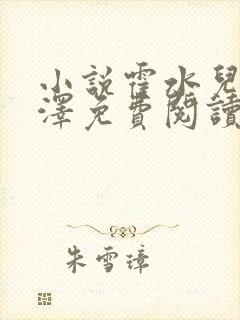 小說霍水兒
澤免費閱讀
朱雪璋